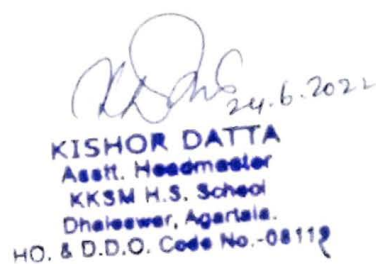 24.6.2022
KISHOR DATTA
Asstt. Headmaster
KKSM H.S. School
Dhaleswar, Agartala.
HO. & D.D.O. Code No.-08112